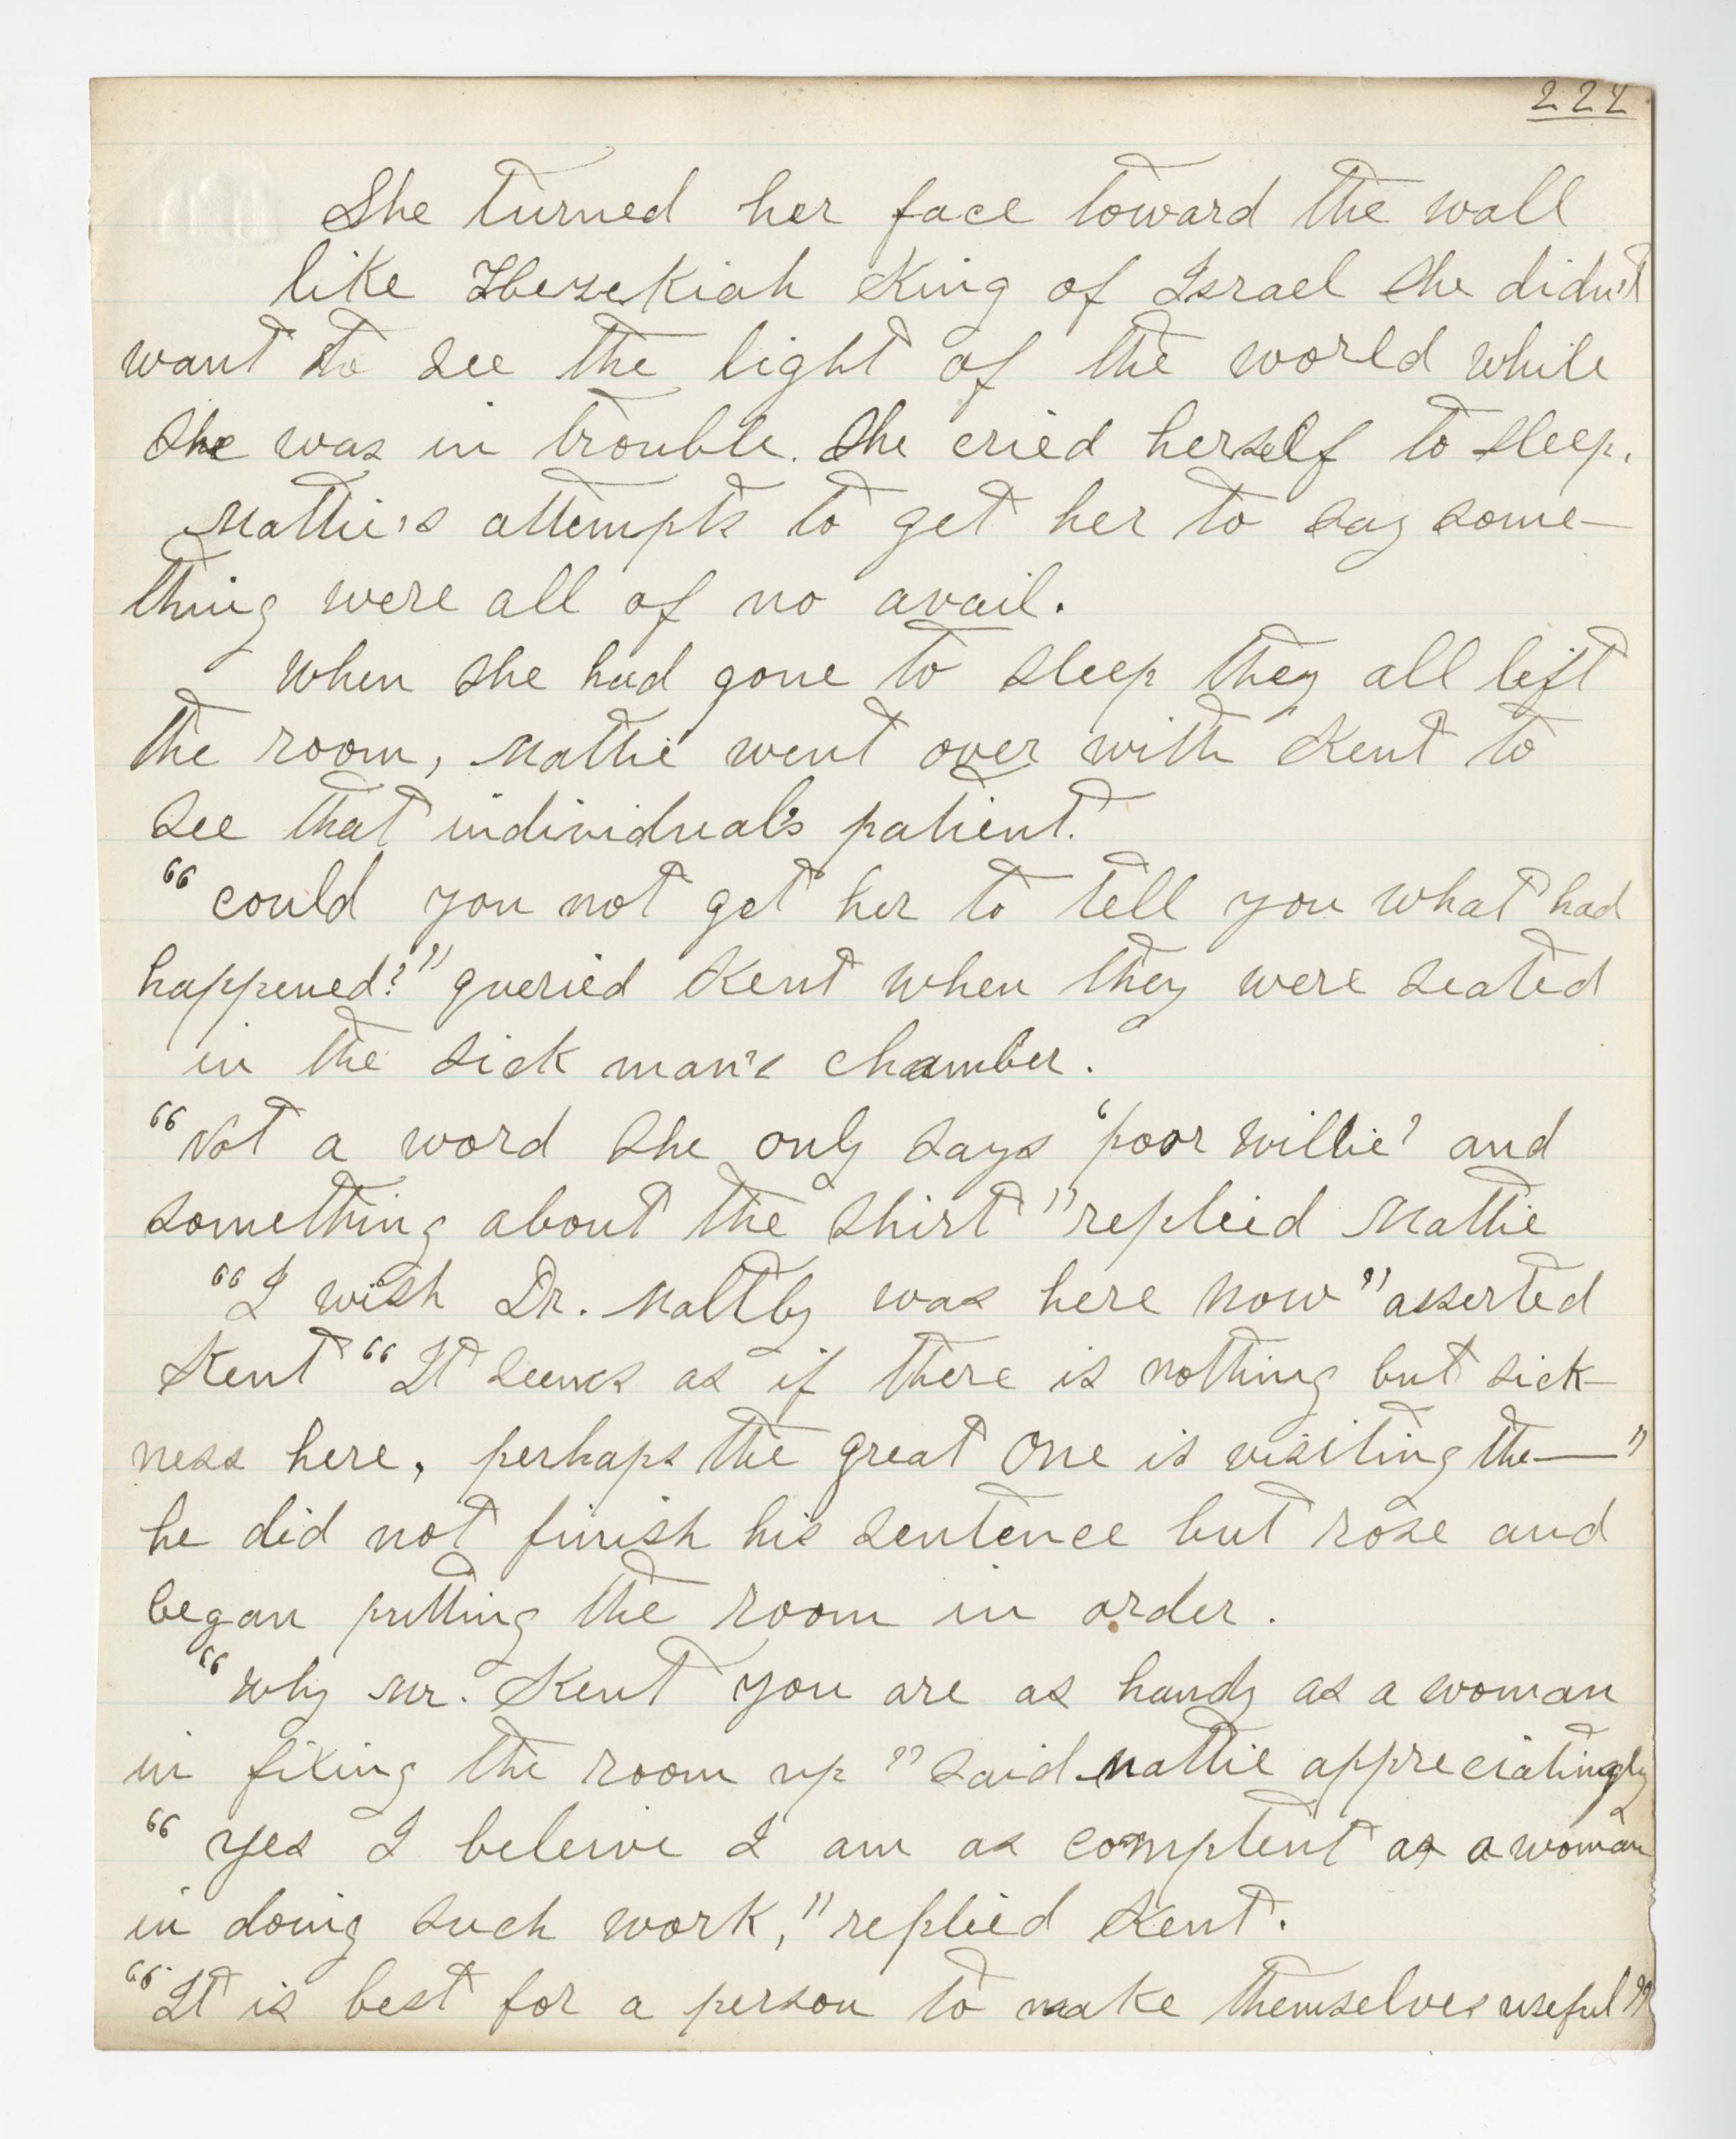 222
She turned her face toward the wall
like Hezekiah King of Israel she didn't
want to see the light of the world while
she was in trouble. She cried herself to sleep.
Mattie's attempts to get her to say some-
thing were all of no avail.
When she had gone to sleep they all left
the room, Mattie went over with Kent to
see that individual's patient.
"could you not get her to tell you what had
happened?" queried Kent when they were seated
in the sick man's chamber.
"Not a word she only says 'poor Willie' and
something about the shirt" replied Mattie
"I wish Dr. Maltby was here now" asserted
Kent "It seems as if there is nothing but sick-
ness here, perhaps the great One is visiting the—"
he did not finish his sentence but rose and
began putting the room in order.
"Why Mr. Kent you are as handy as a woman
in fixing the room up" said Mattie appreciatingly
"Yes I beleive I am as comptent as a woman
in doing such work," replied Kent.
"It is best for a person to make themselves useful"